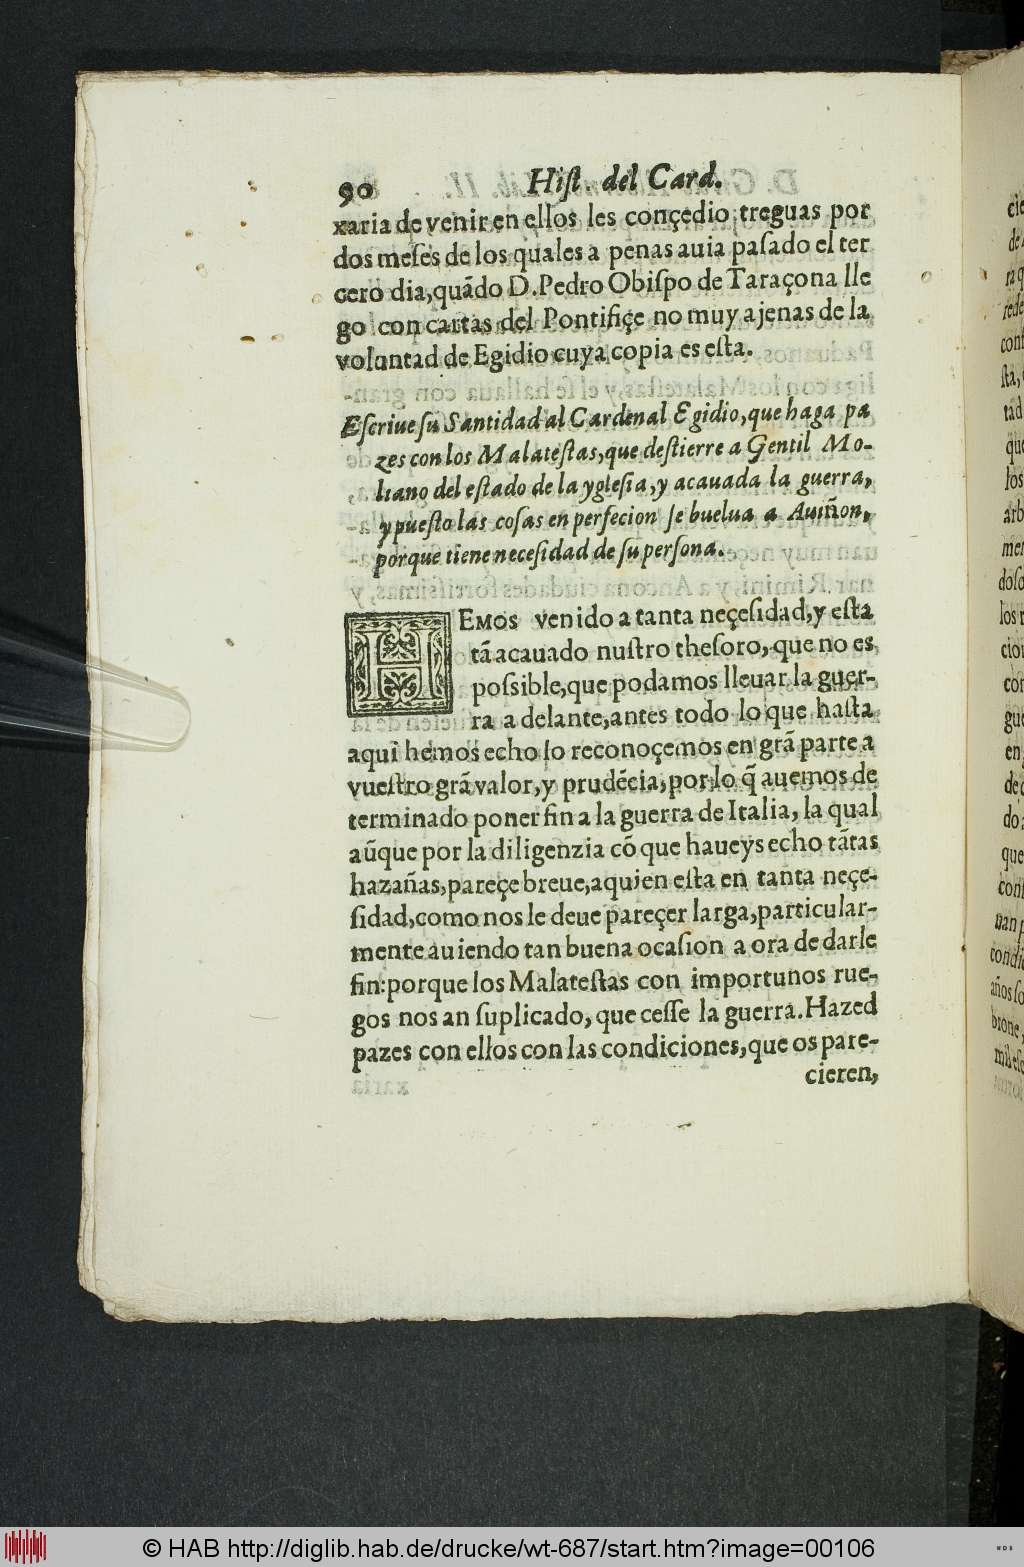 90 Hiſt. del Card.
xaria de venir en ellos les conçedio treguas por
dos meſes de los quales a penas avia paſado el ter
cero dia, quãdo D. Pedro Obiſpo de Taraçona lle
go con cartas del Pontifiçe no muy ajenas de la
voluntad de Egidio cuya copia es eſta.
Eſcriue ſu Santidad al Cardenal Egidio, que haga pa
zes con los Malateſtas, que deſtierre a Gentil Mo-
liano del eſtado de la ygleſia, y acauada la guerra,
y pueſto las coſas en perfecion ſe buelua a Auiñon,
porque tiene neceſidad de ſu perſona.
HEMOS venido a tanta neçeſidad, y eſta
tã acauado nuſtro theſoro, que no es
poſsible, que podamos lleuar la guer-
ra adelante, antes todo lo que haſta
aqui hemos echo lo reconoçemos en grã parte a
vueſtro grã valor, y prudẽcia, por lo q̃ auemos de
terminado poner fin a la guerra de Italia, la qual
aũque por la diligenzia cõ que haueys echo tãtas
hazañas, pareçe breue, a quien eſta en tanta neçe-
ſidad, como nos le deue pareçer larga, particular-
mente auiendo tan buena ocaſion a ora de darle
fin: porque los Malateſtas con importunos rue-
gos nos an ſuplicado, que ceſſe la guerra. Hazed
pazes con ellos con las condiciones, que os pare-
cieren,
© HAB http://diglib.hab.de/drucke/wt-687/start.htm?image=00106